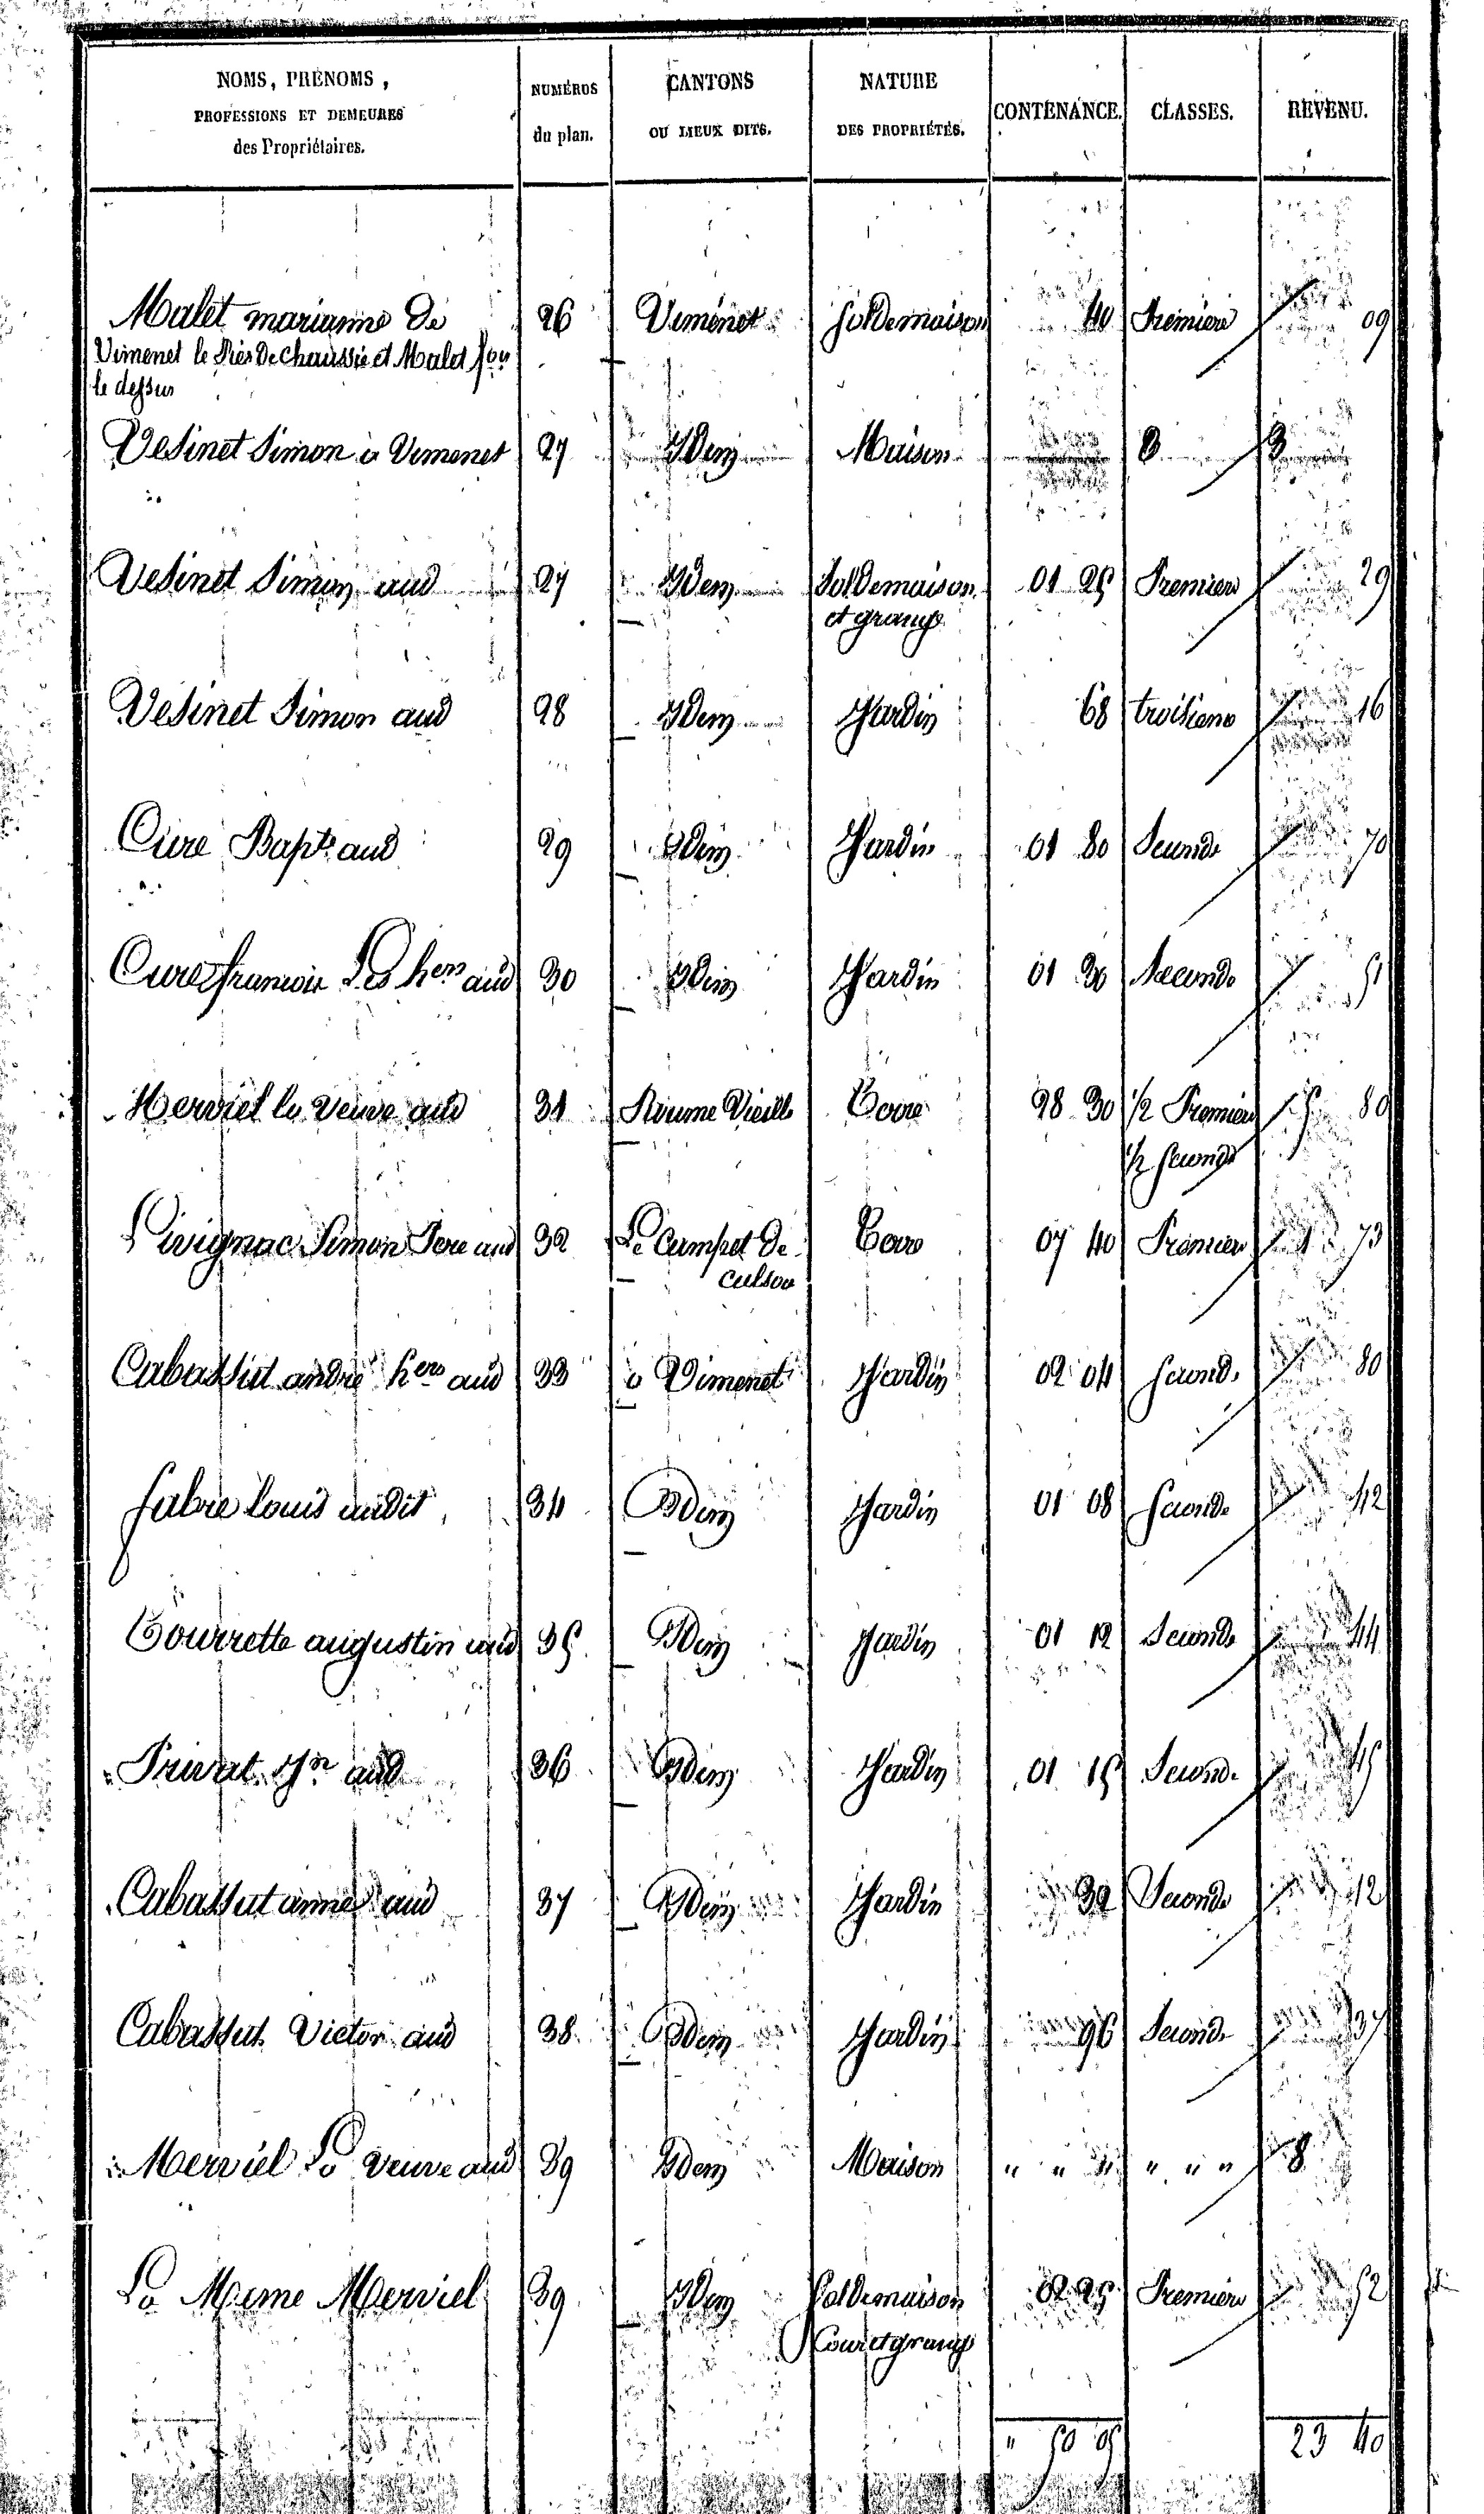 NOMS, PRÉNOMS, PROFESSIONS ET DEMEURES des Propriétaires. NUMÉROS du plan. CANTONS OU LIEUX DITS. NATURE DES PROPRIÉTÉS. CONTENANCE. CLASSES. REVENU.
Malet marianne de 26 Vimenet Sol de maison 40 Premiere 09
Vimenet le Rés De chaussée et Malet
le dessus
Vesinet Simon à Vimenet 27 Idem Maison 8
Vesinet Simon aud 27 Idem Sol de maison 01 25 Premiere 29
et grange
Vesinet Simon aud 28 Idem Jardin 68 troisieme 16
Cure Bapte aud 29 Idem Jardin 01 80 Seconde 70
Cure francois Les hers aud 30 Idem Jardin 01 30 Seconde 51
Merviel la Veuve aud 31 Vieille Terre 28 30 1/2 Premiere 5 80
1/2 Seconde
Livignac Simon Pere aud 32 Le Campet de Terre 07 40 Premiere 1 73
Cabassut andré hers aud 33 à Vimenet Jardin 02 04 Seconde 80
fabre Louis audit 34 Idem Jardin 01 08 Seconde 42
Tourrette augustin aud 35 Idem Jardin 01 12 Seconde 44
Privat Jn aud 36 Idem Jardin 01 15 Seconde 45
Cabassut anne aud 37 Idem Jardin 32 Seconde 12
Cabassut Victor aud 38 Idem Jardin 96 Seconde 37
Merviel La Veuve aud 39 Idem Maison " " " " " " 8
La Meme Merviel 39 Idem Sol de maison 02 25 Premiere 52
Cour et grange
" 50 05 23 40